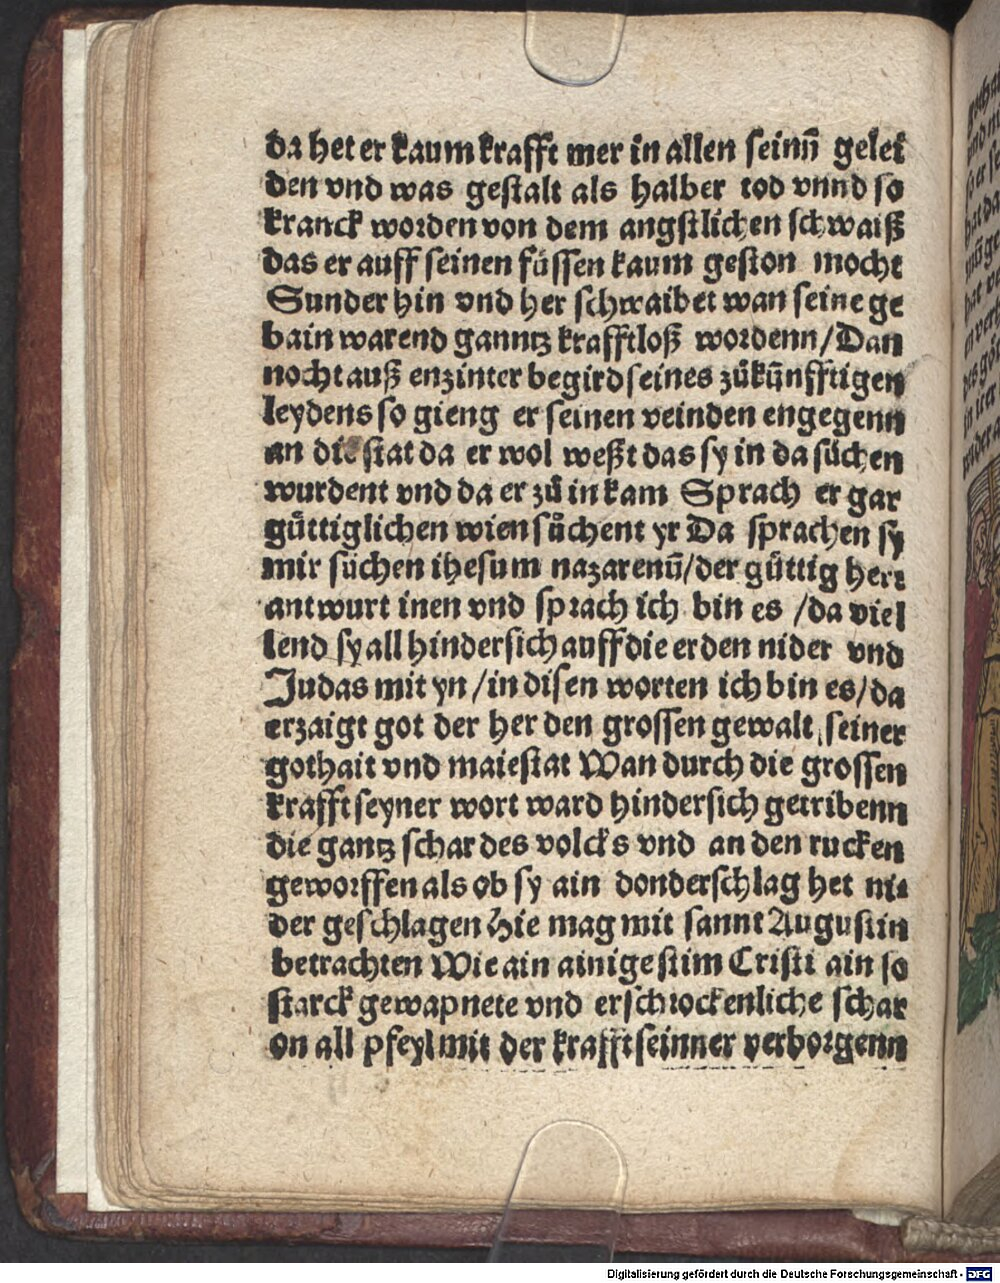 da het er kaum krafft mer in allen seinn̄ gelei
den vnd was gestalt als halber tod vnnd so
kranck worden von dem angstlichen schwaiß
das er auff seinen füssen kaum geston mocht
Sunder hin vnd her schwaibet wan seine ge
bain warend ganntz krafftloß wordenn/Dan
nocht auß enzinter begird seines zůkün̄fftigen
leydens so gieng er seinen veinden engegenn
an die stat da er wol weßt das sy in da sůchen
wurdent vnd da er zů in kam Sprach er gar
gůttiglichen wien sůchent yr Da sprachen sy
mir sůchen ihesum nazarenū/der gůttig herr
antwurt inen vnd sprach ich bin es /da viel
lend sy all hindersich auff die erden nider vnd
Judas mit yn /in disen worten ich bin es/da
erzaigt got der her den grossen gewalt seiner
gothait vnd maiestat Wan durch die grossen
krafft seyner wort ward hindersich getribenn
die gantz schar des volcks vnd an den rucken
geworffen als ob sy ain donderschlag het ni
der geschlagen Hie mag mit sannt Augustin
betrachten Wie ain ainige stim Cristi ain so
starck gewapnete vnd erschrockenliche schar
on all pfeyl mit der krafft seinner verborgenn
Digitalisierung gefördert durch die Deutsche Forschungsgemeinschaft - DFG